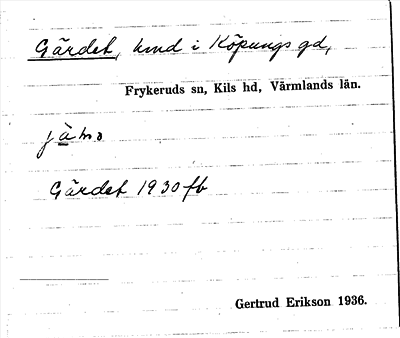 Gärdet, hmd i Köpungs gd,
Frykeruds sn, Kils hd, Värmlands län.
Gärdet 1930 fb
Gertrud Erikson 1936.